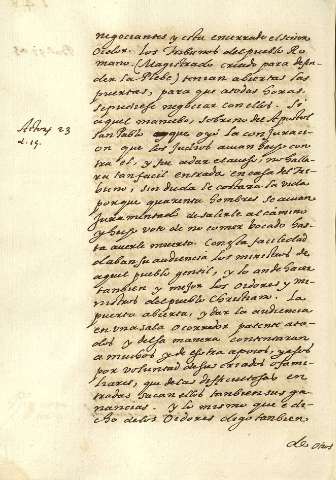 negociantes y esta encerrado el señor
oidor. Los Tribunos del pueblo Ro
mano (Magistrado criado para defen
der la Plebe) tenian abiertas las
puertas, para que a todas horas
se pudiese negociar con ellos. Si
aquel mancebo, sobrino del Apostol
san Pablo que oyó la conjuracion
que los Judios avian hecho
contra el, y fue a dar el aviso, no halla
ra tan facil entrada en casa del Tri
buno, sin duda le costara la vida
porque quarenta hombres se avian
juramentado de salirle al camino
y hecho voto de no comer bocado has
ta averle muerto. Con esta facilidad
daban su audiencia los ministros de
aquel pueblo gentil, y lo an de hacer
tambien y mejor los Oidores y mi
nistros del pueblo Christiano. La
puerta abierta, y dar la audiencia
en una sala o corredor patente a to
dos y desta manera contentaran
a muchos y de otra a pocos, y essos
por voluntad de sus criados o fami
liares, que de las dificultosas en
tradas sacan ellos tambien sus ga
nancias. Y lo mismo que e di
cho de los Oidores digo tambien
de otros
Actor. 23